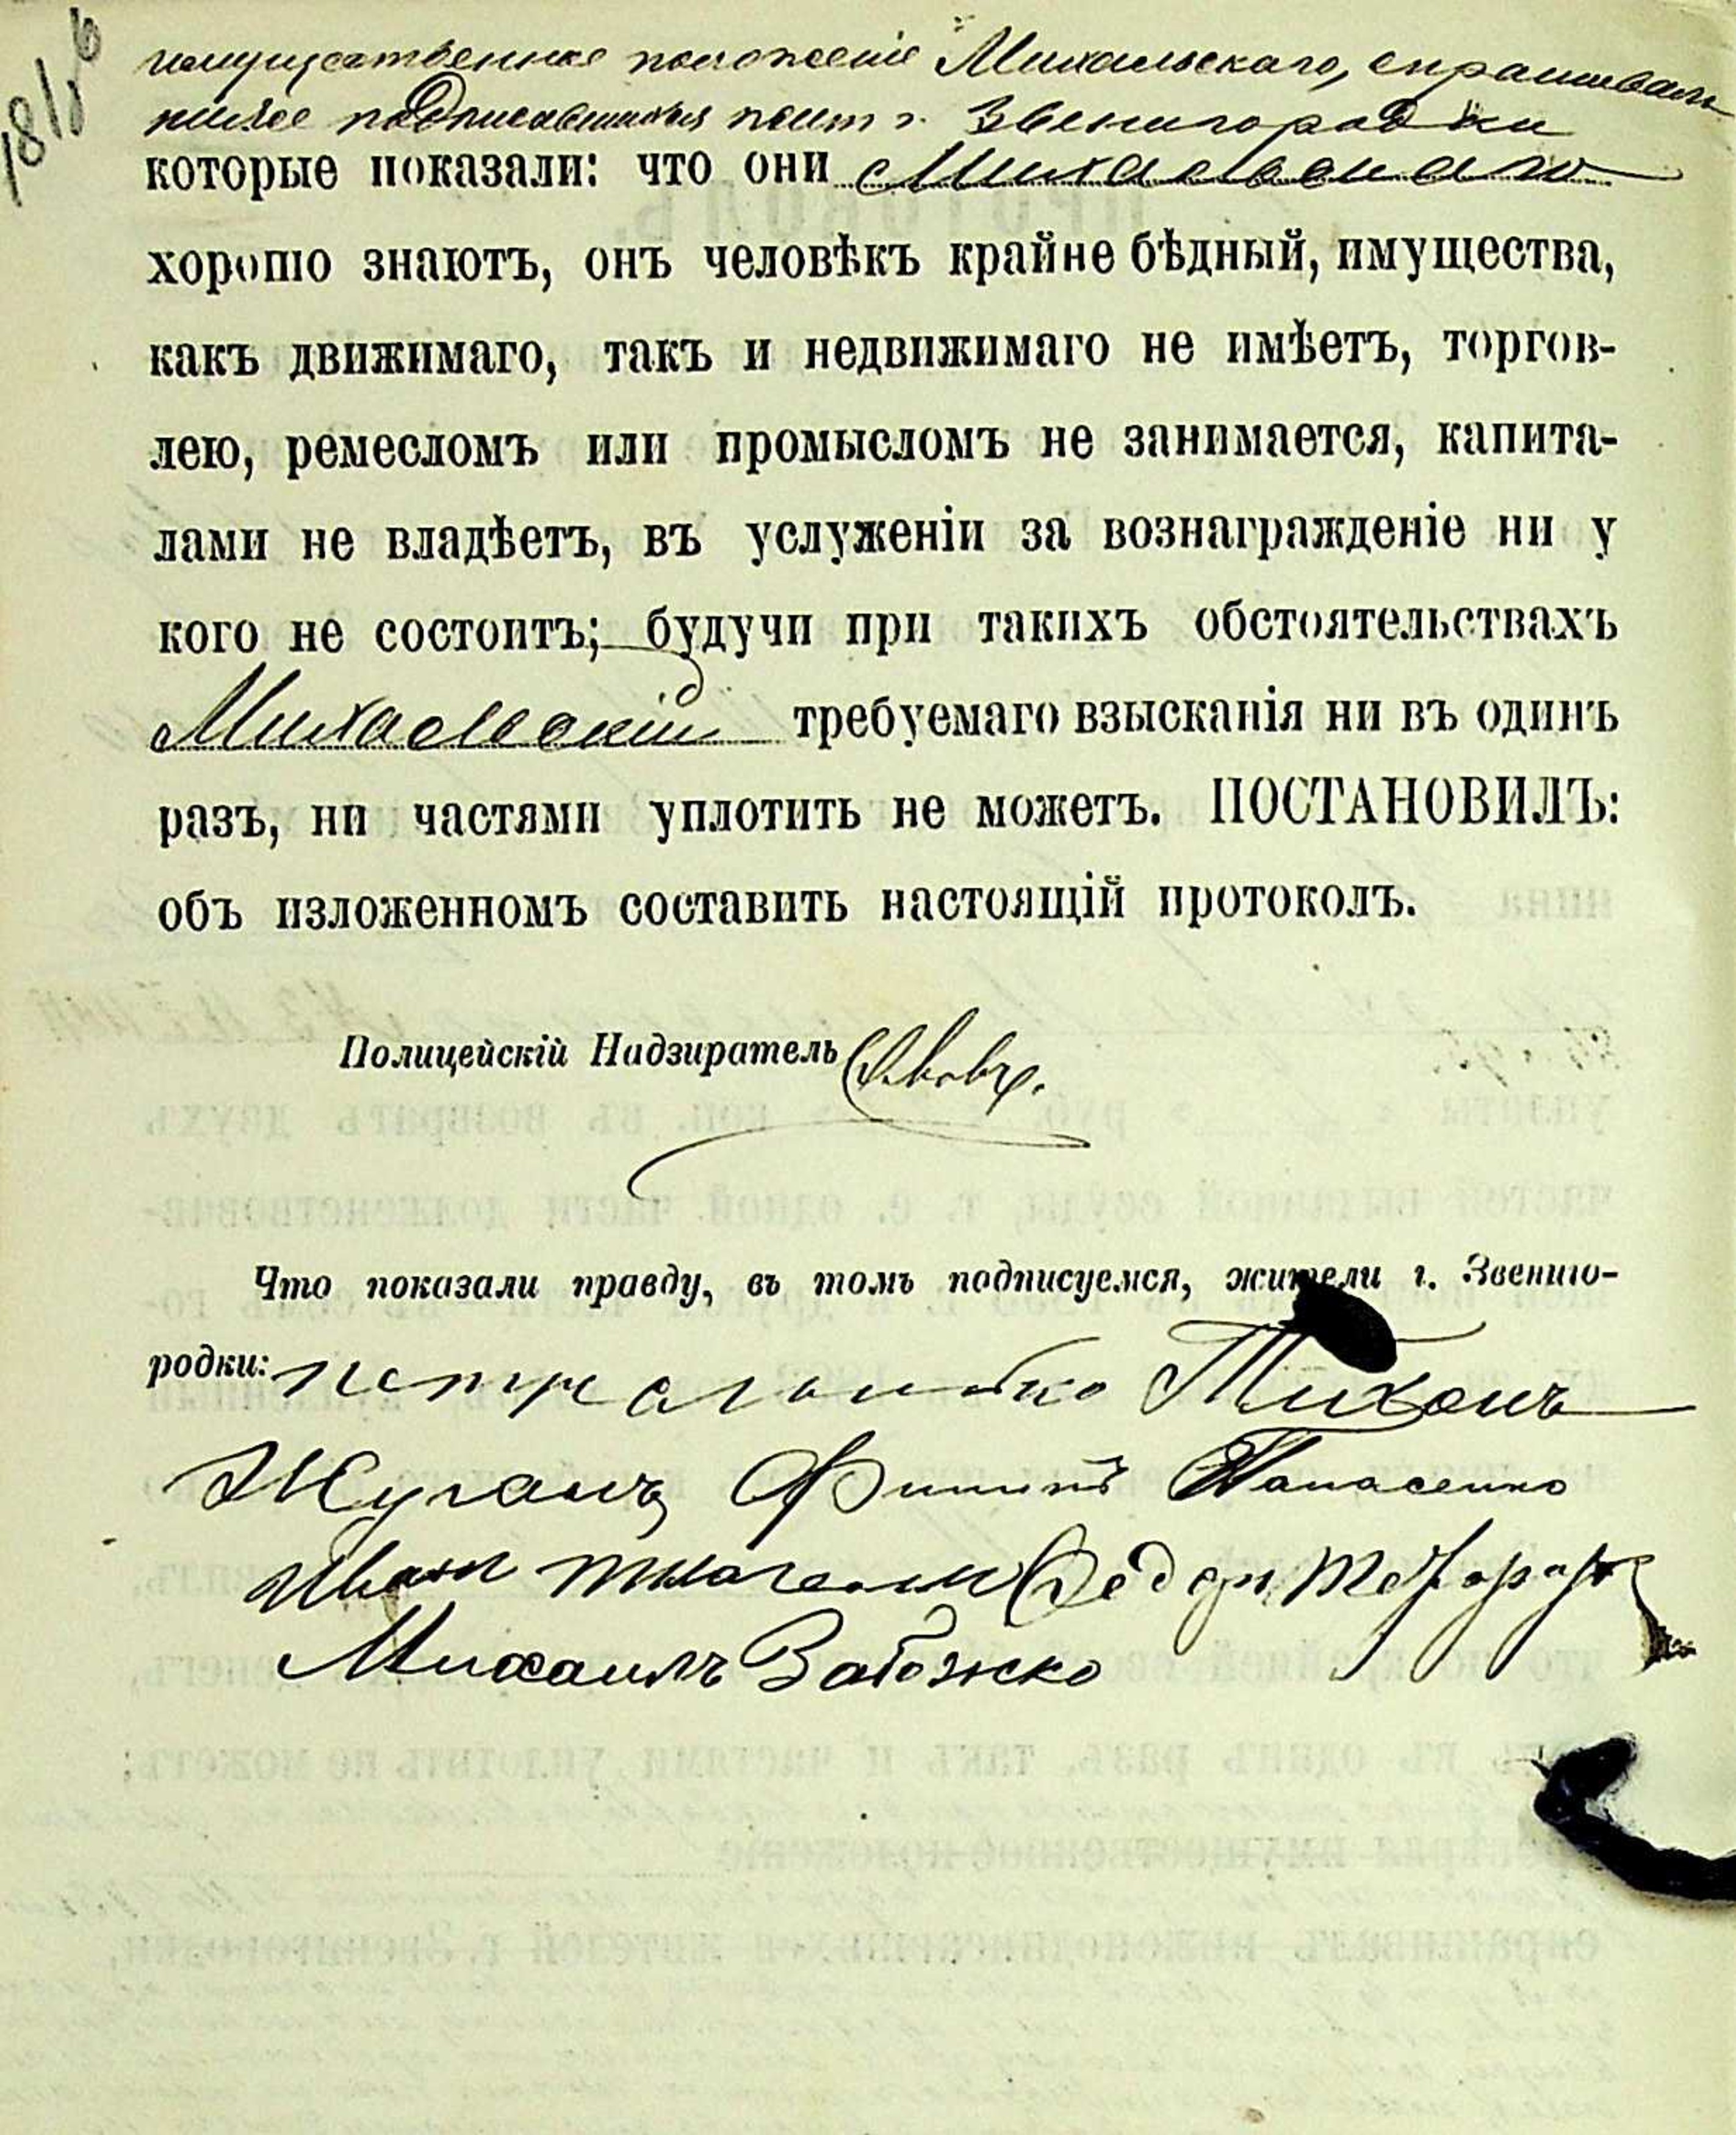 имущественное положеніе Михальскаго, спрашивалъ
ниже подписавшихся г. Звенигородки
которые показали: что они Михальскаго
хорошо знаютъ, онъ человѣкъ крайне бѣдный, имущества,
какъ движимаго, такъ и недвижимаго не имѣетъ, торгов-
лею, ремесломъ или промысломъ не занимается, капита-
лами не владѣетъ, въ услуженіи за вознагражденіе ни у
кого не состоитъ; будучи при такихъ обстоятельствахъ
Михальскій требуемаго взысканія ни въ одинъ
разъ, ни частями уплотить не можетъ. ПОСТАНОВИЛЪ:
объ изложенномъ составить настоящій протоколъ.
Полицейскій Надзиратель
Что показали правду, въ томъ подписуемся, жители г. Звениго-
родки: Тихонъ
Жуганъ Филипъ Панасенко
Иван Федор
Михаилъ Забожко